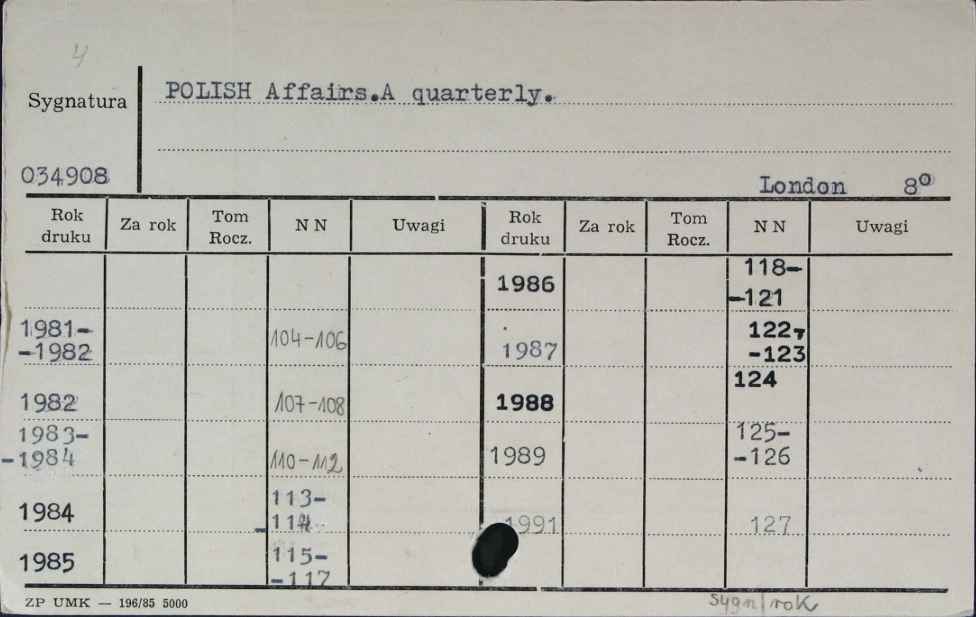 4
POLISH Affairs.A quarterly.
Sygnatura
034908
London 8º
Rok druku Za rok Tom Rocz. NN Uwagi Rok druku Za rok Tom Rocz. NN Uwagi
1986 118-
-121
1981-
-1982 104-106
1987 122,
-123
1982 107-108
1988 124
1983-
-1984 110-112
1989 125-
-126
1984 113-
-114
1991 127
1985 115-
-117
ZP UMK — 196/85 5000
sygn/rok